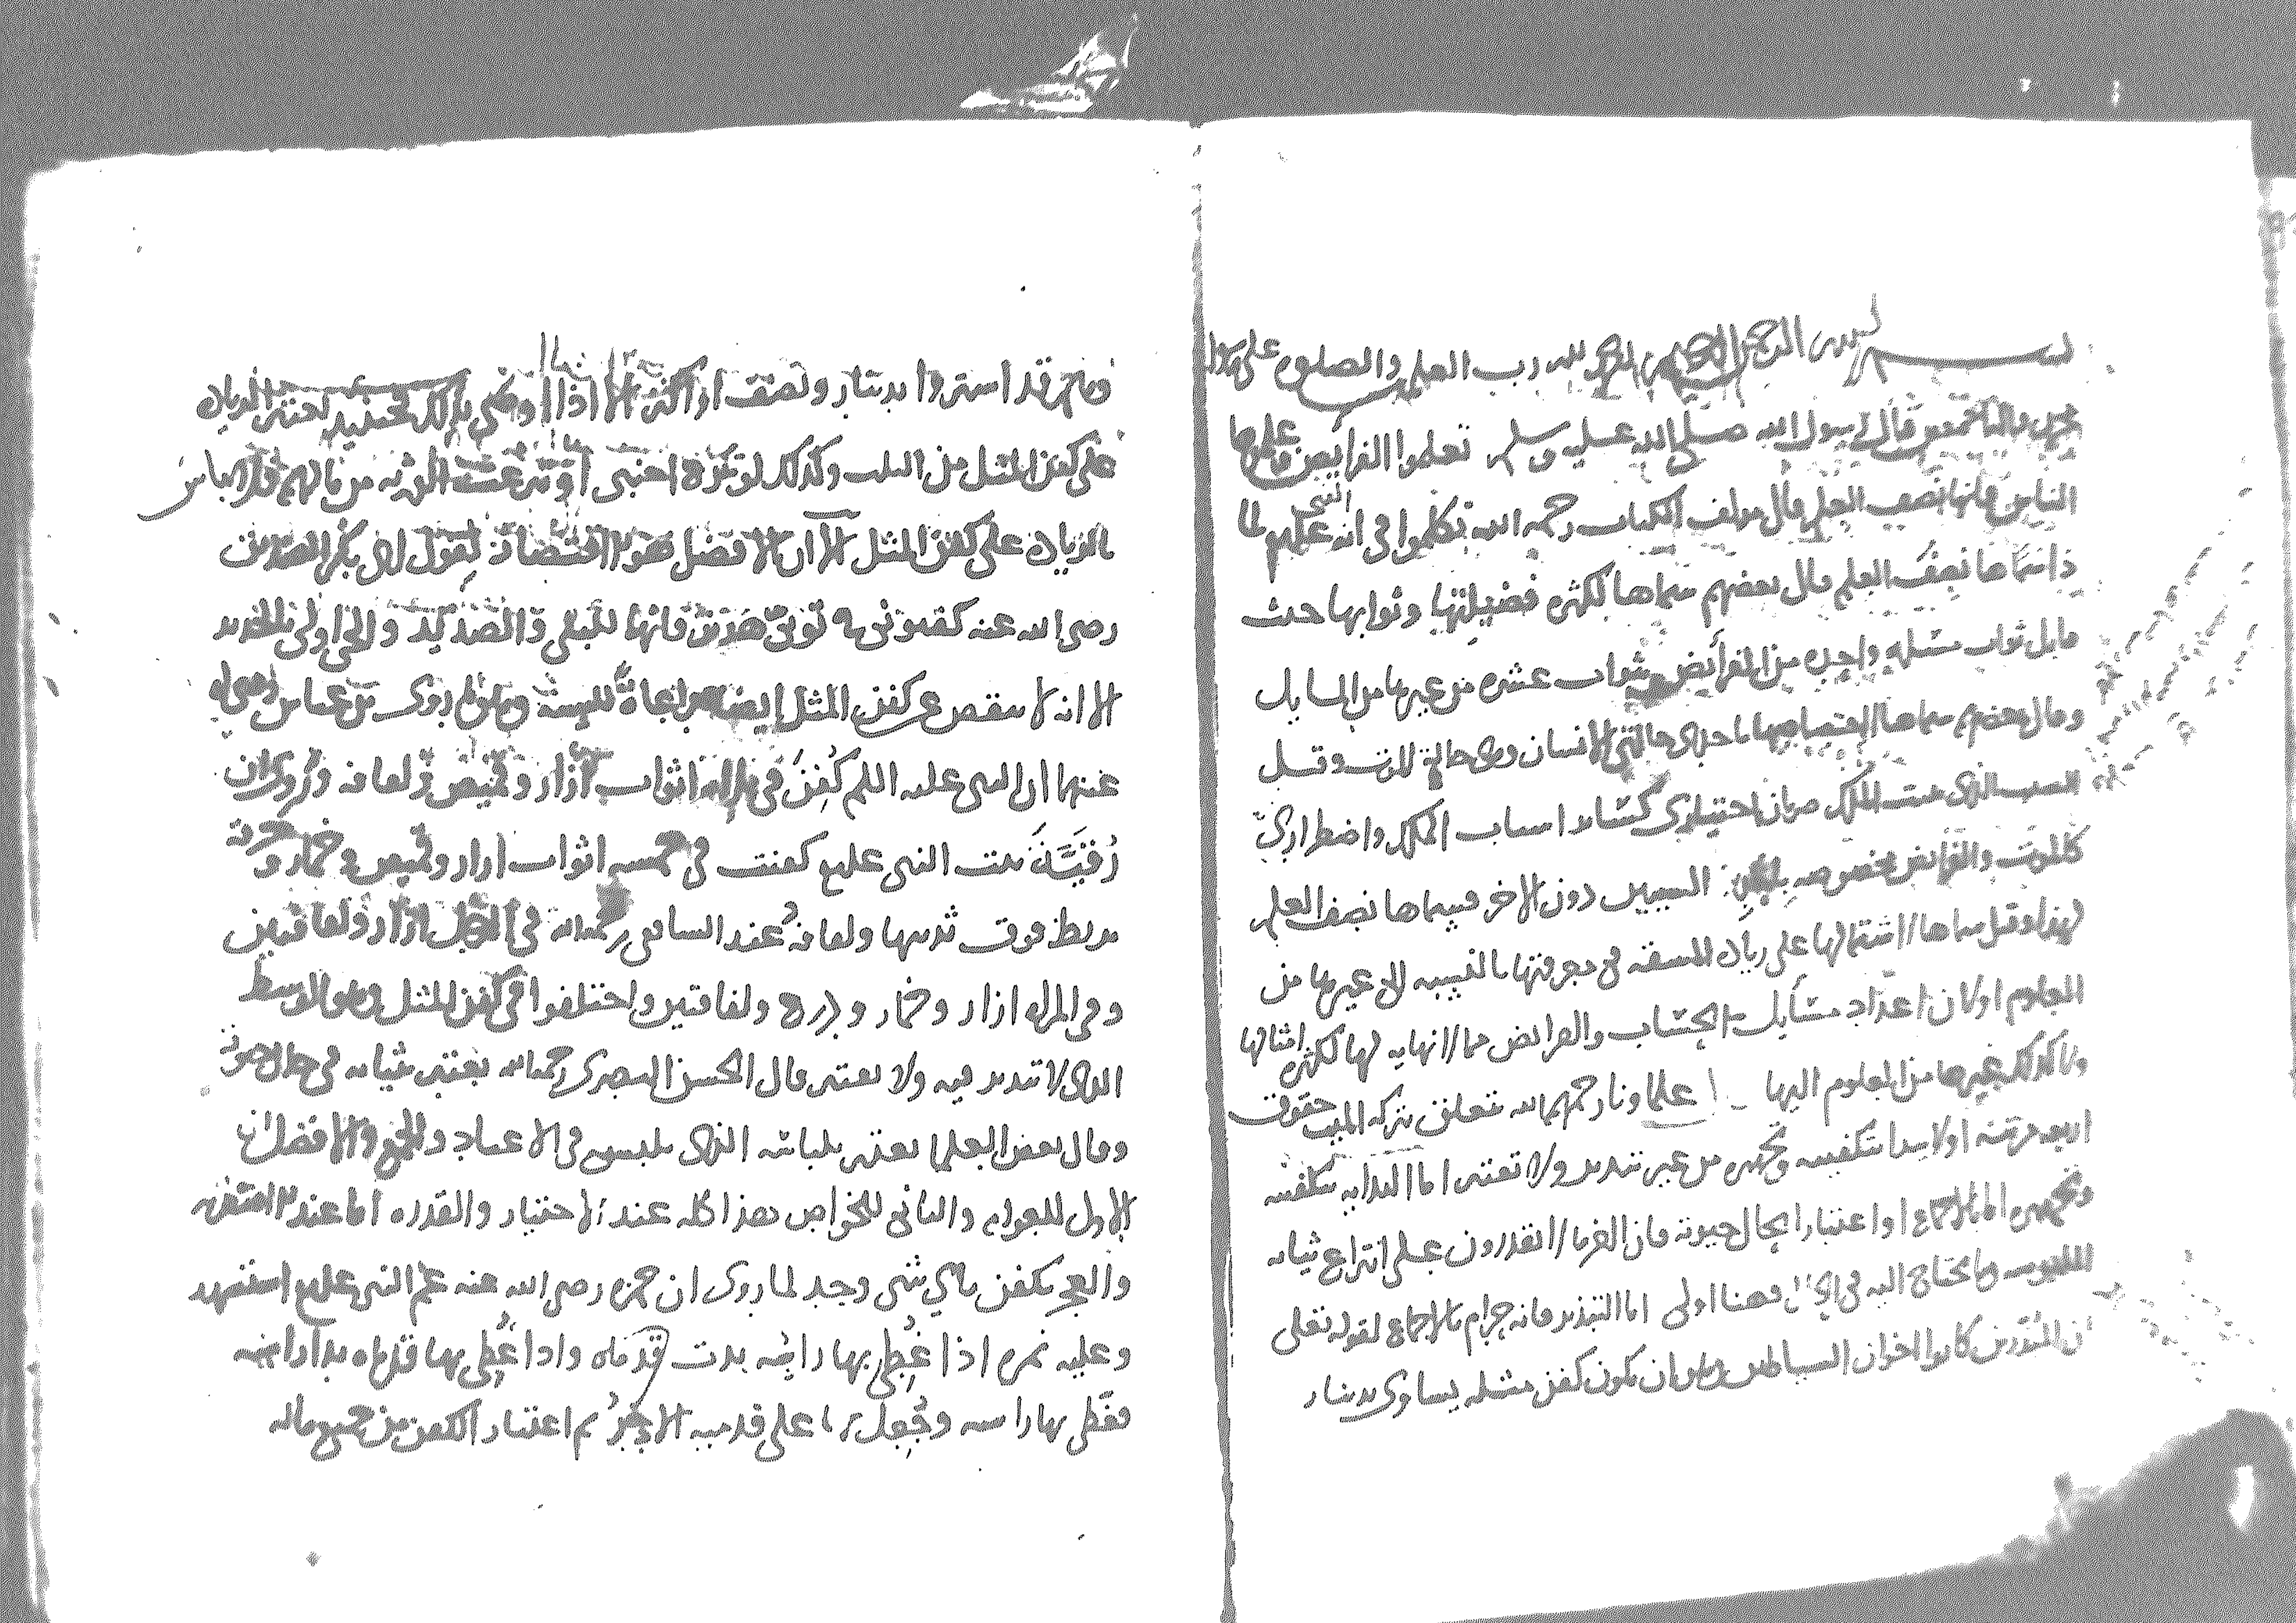 بسم الله الرحمن الرحيم الحمد لله رب العلمين والصلوه على
قال رسول الله صلى الله عليه وسلم تعلموا الفرايض وعلموها
الناس فانها نصف العلم قال مولف الكتاب رحمه الله تكلموا في ان النبي عليه لما
ذا سماها نصف العلم قال بعضهم سماها لكثره فضيلتها وثوابها حيث
قابل ثواب مسئله واحده من الفرائض بثواب عشره من غيرها من المسايل
وقال بعضهم سماها لاختصاصها باحدى حالتي الانسان وهي حالة الموت وقيل
السبب الذي يثبت الملك ضربان اختيارى كسائر اسباب الملك واضطرارىّ
كالموت والفرايض مخصوصه السببين دون الاخر فسماها نصف العلم
لهذا وقيل سماها لاشتمالها على زياده المشقه في معرفتها بالنسبه الى غيرها من
العلوم او لان اعداد مسايل الحساب والفرايض مما لا نهايه لها لكثره امثالها
ولا كذلك غيرها من العلوم اليها علماونا رحمهم الله تتعلق بتركه الميت حقوق
اربعه مرتبه اولا يبدا بتكفينه وتجهيزه من غير تبذير ولا تقتير اما البدايه بتكفينه
وتجهيزه اما بالاجماع او اعتبارا بحال حيوته فان الغرما لا يقدرون على انتزاع ثيابه
الملبوسه وما يحتاج اليه في الحال فهنا اولى اما التبذير فانه حرام بالاجماع لقوله تعلى
ان المبذرين كانوا اخوان الشياطين وهو ان يكون كفن مثله يساوى بدينار
قد اشتروا بدينار ونصف او اكثر الا اذا اوصى بذلك فحينئذ تعتبر الزياده
على كفن المثل من الثلث وكذلك لو تبرع اجنبى او تبرعت الورثه من مالهم فلا باس
بالزياده على كفن المثل الا ان الافضل هو الاقتصار لقول ابى بكر الصديق
رضى الله عنه كفنونى في ثوبىّ هذين فانها للبلى والصديد والحى اولى بالجديد
الا انه لا ينقص عن كفن المثل ايضا مراعاة للسنة وهو ما روى عن ابن عباس رضى الله
عنهما ان النبى عليه السلم كُفِنَ في ثلاثه اثواب ازار وقميص ولفافه وروى ان
رُقَيَّةَ بنت النبى عليه السلم كفنت في خمسه اثواب ازار وقميص وخمار وخرقة
تربط فوق ثدييها ولفافه وعند الشافعى رحمه الله في الرجل ازار ولفافتين
وفي المراه ازار وخمار ودرع ولفافتين واختلفوا في كفن المثل وهو الوسط
الذى لا تبذير فيه ولا تقتير قال الحسن البصرى رحمه الله يعتبر ثيابه في حال حيوته
وقال بعض العلما يعتبر بلباسه الذى يلبس في الاعياد والجمع والافضل ان
الاول للعوام والثانى للخواص هذا كله عند الاختيار والقدره اما عند الاضطرار
والعجز يكفن باي شى وجد لما روى ان حمزه رضى الله عنه عم النبى عليه السلم استشهد
وعليه نمره اذا غُطِى بها راسه بدت قدماه واذا غُطِى بها قدماه بدا راسه
فغطى بها راسه وجُعِل على قدميه الاذخر ثم اعتبار الكفن من جميع ماله